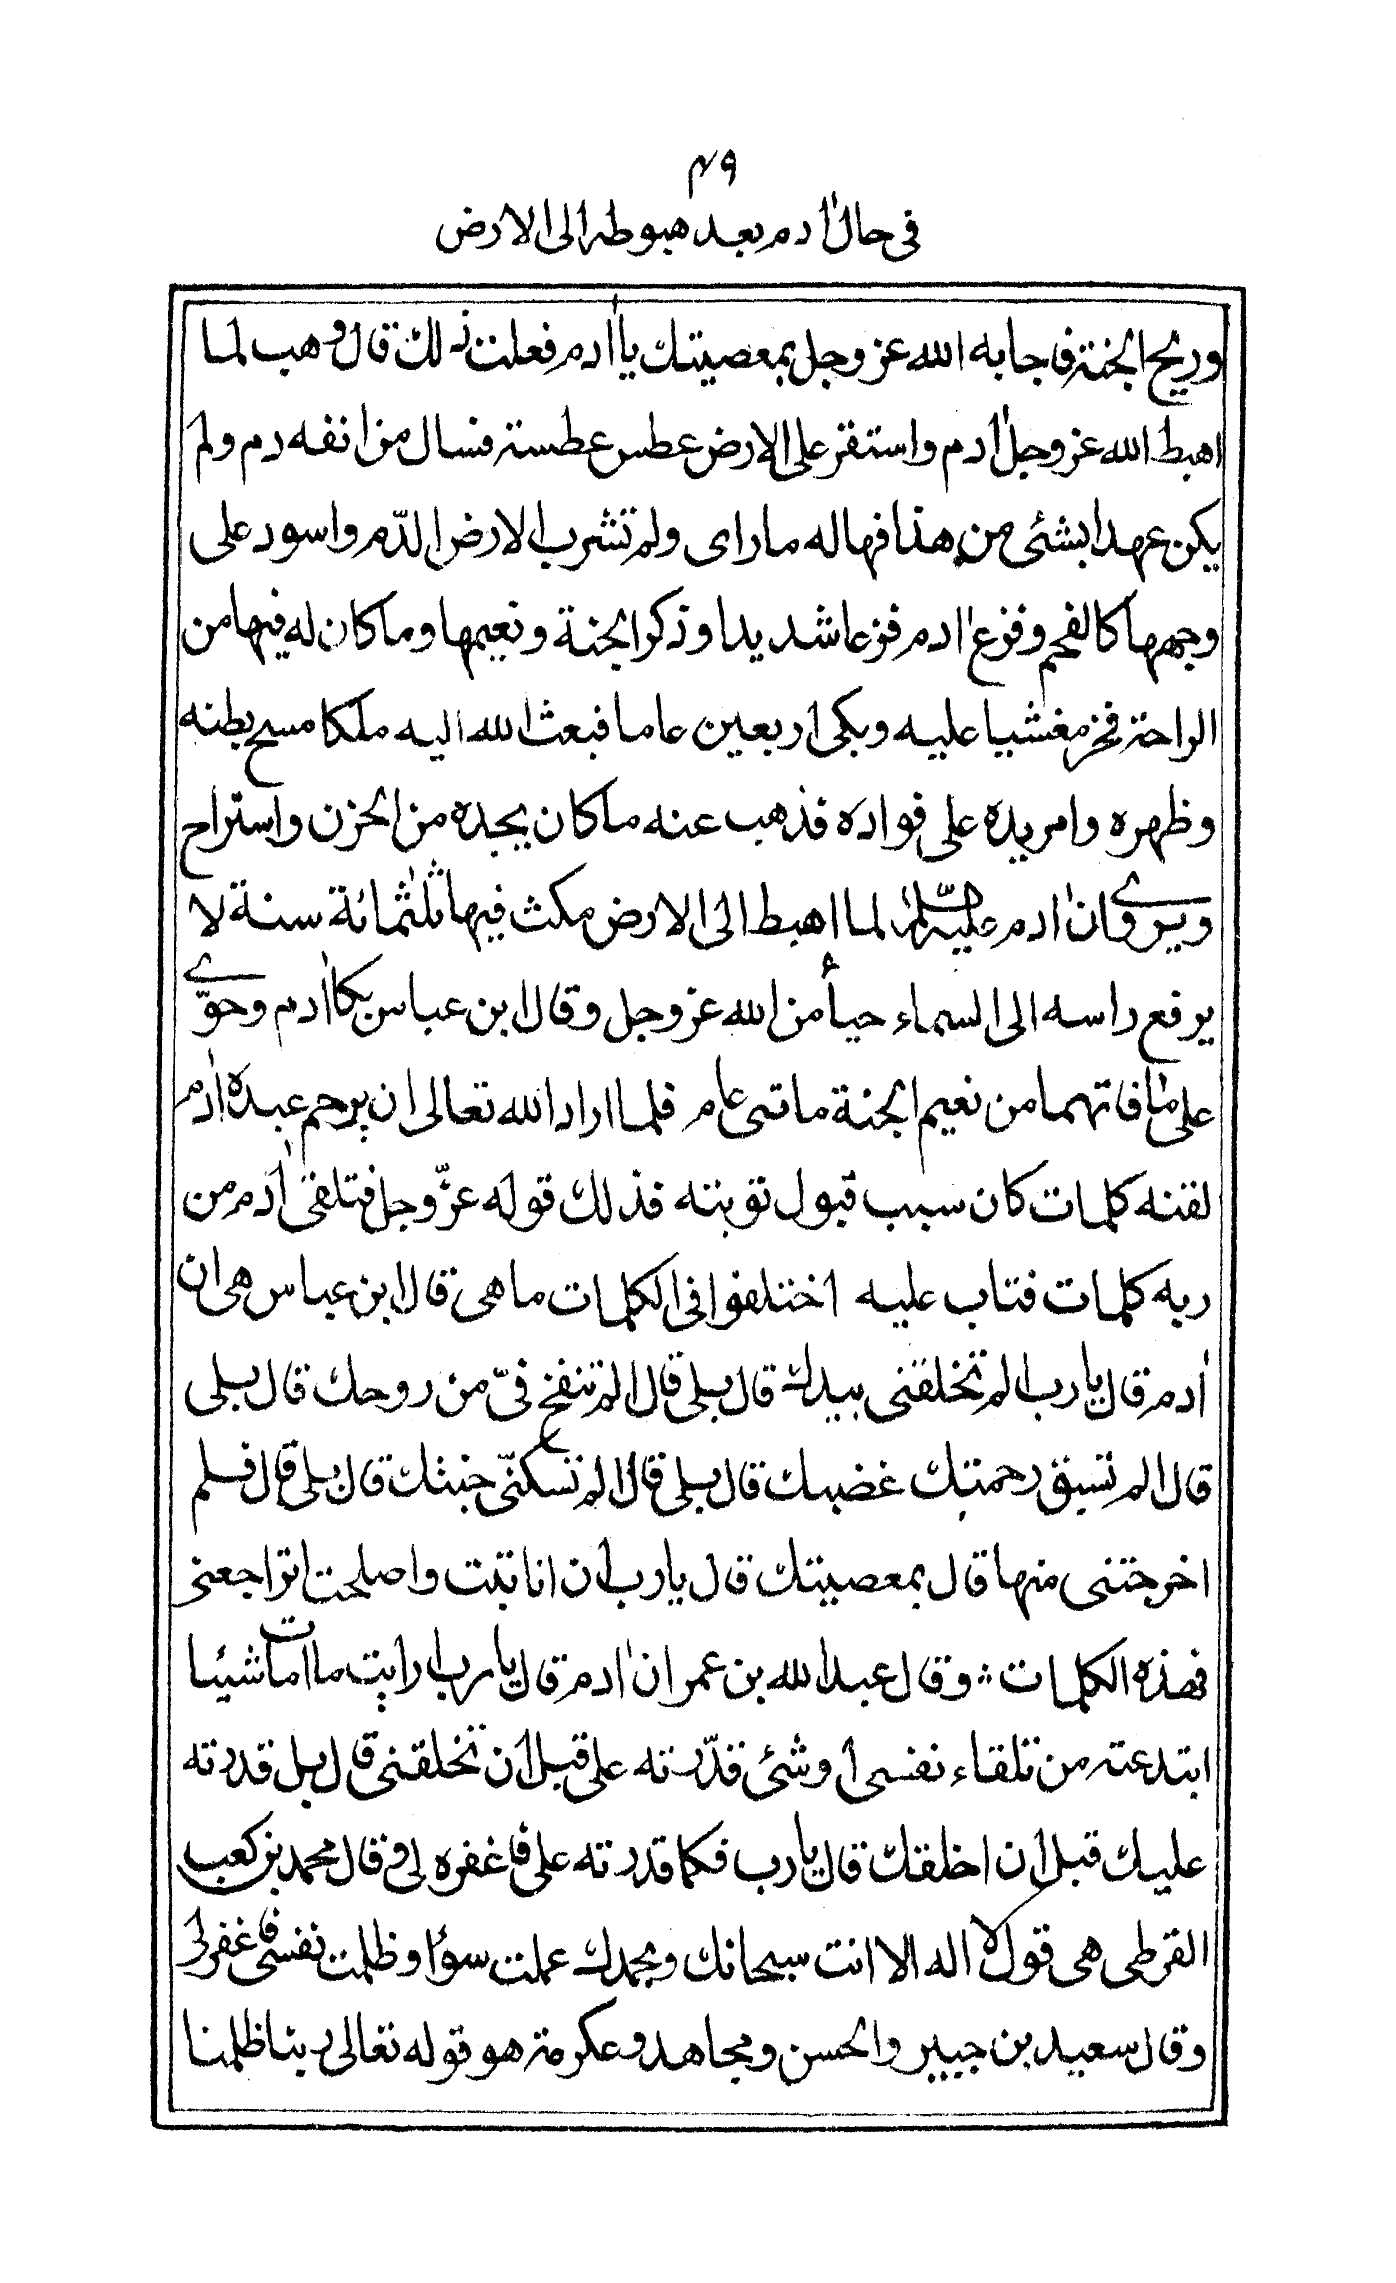 ٤٩
في حال اٰدم بعد هبوطه الى الارض
وريح الجنة فاجابه الله عز وجل بمعصيتك يا اٰدم فعلت ذلك قال وهب لما
اهبط الله عز وجل اٰدم واستقر على الارض عطس عطسة فسال من انفه دم ولم
يكن عهد ابشئ من هذا فهاله ماراى ولم تشرب الارض الدّم واسود على
وجهها كالفحم وفزع اٰدم فزعا شديدا وذكر الجنة ونعيمها وما كان له فيها من
الراحة فخر مغشيا عليه وبكى اربعين عاما فبعث الله اليه ملكا مسح بطنه
وظهره وامريده على فواده فذهب عنه ماكان يجده من الحزن واستراح
ويروے ان اٰدم عليه السّلام لما اهبط الى الارض مكث فيها ثلٰثمائة سنة لا
يرفع راسه الى السماء حياءً من الله عز وجل وقال ابن عباس بكا اٰدم وحوّے
على ما فاتهما من نعيم الجنة ماتى عام فلما اراد الله تعالى ان يرحم عبده اٰدم
لقنه كلمات كان سبب قبول توبته فذلك قوله عزّ وجل فتلقى اٰدم من
ربه كلمات فتاب عليه اختلفوا فى الكلمات ماهى قال ابن عباس هى ان
اٰدم قال يارب الم تخلقنى بيدك قال بلى قال الم تنفخ فىّ من روحك قال بلى
قال الم تسبق رحمتك غضبك قال بلى قال الم تسكنّى جنتك قال بلى قال فلم
اخرجتنى منها قال بمعصيتك قال يارب أن انا تبت واصلحت اتراجعنى
فهذه الكلمات ؛ وقال عبد الله بن عمر ان اٰدم قال يارب ارايت ما اتيت اشيئا
ابتدعته من تلقاء نفسى أو شئ قدّرته على قبل أن تخلقنى قال بل قدرته
عليك قبل أن اخلقك قال يارب فكما قدرته على فاغفره لى و قال محمد بن كعب
القرطى هى قول لا اله الا انت سبحانك وبحمدك عملت سوءًا وظلمت نفسى فاغفرلى
وقال سعيد بن جبير والحسن ومجاهد وعكرمة هو قوله تعالى ربنا ظلمنا